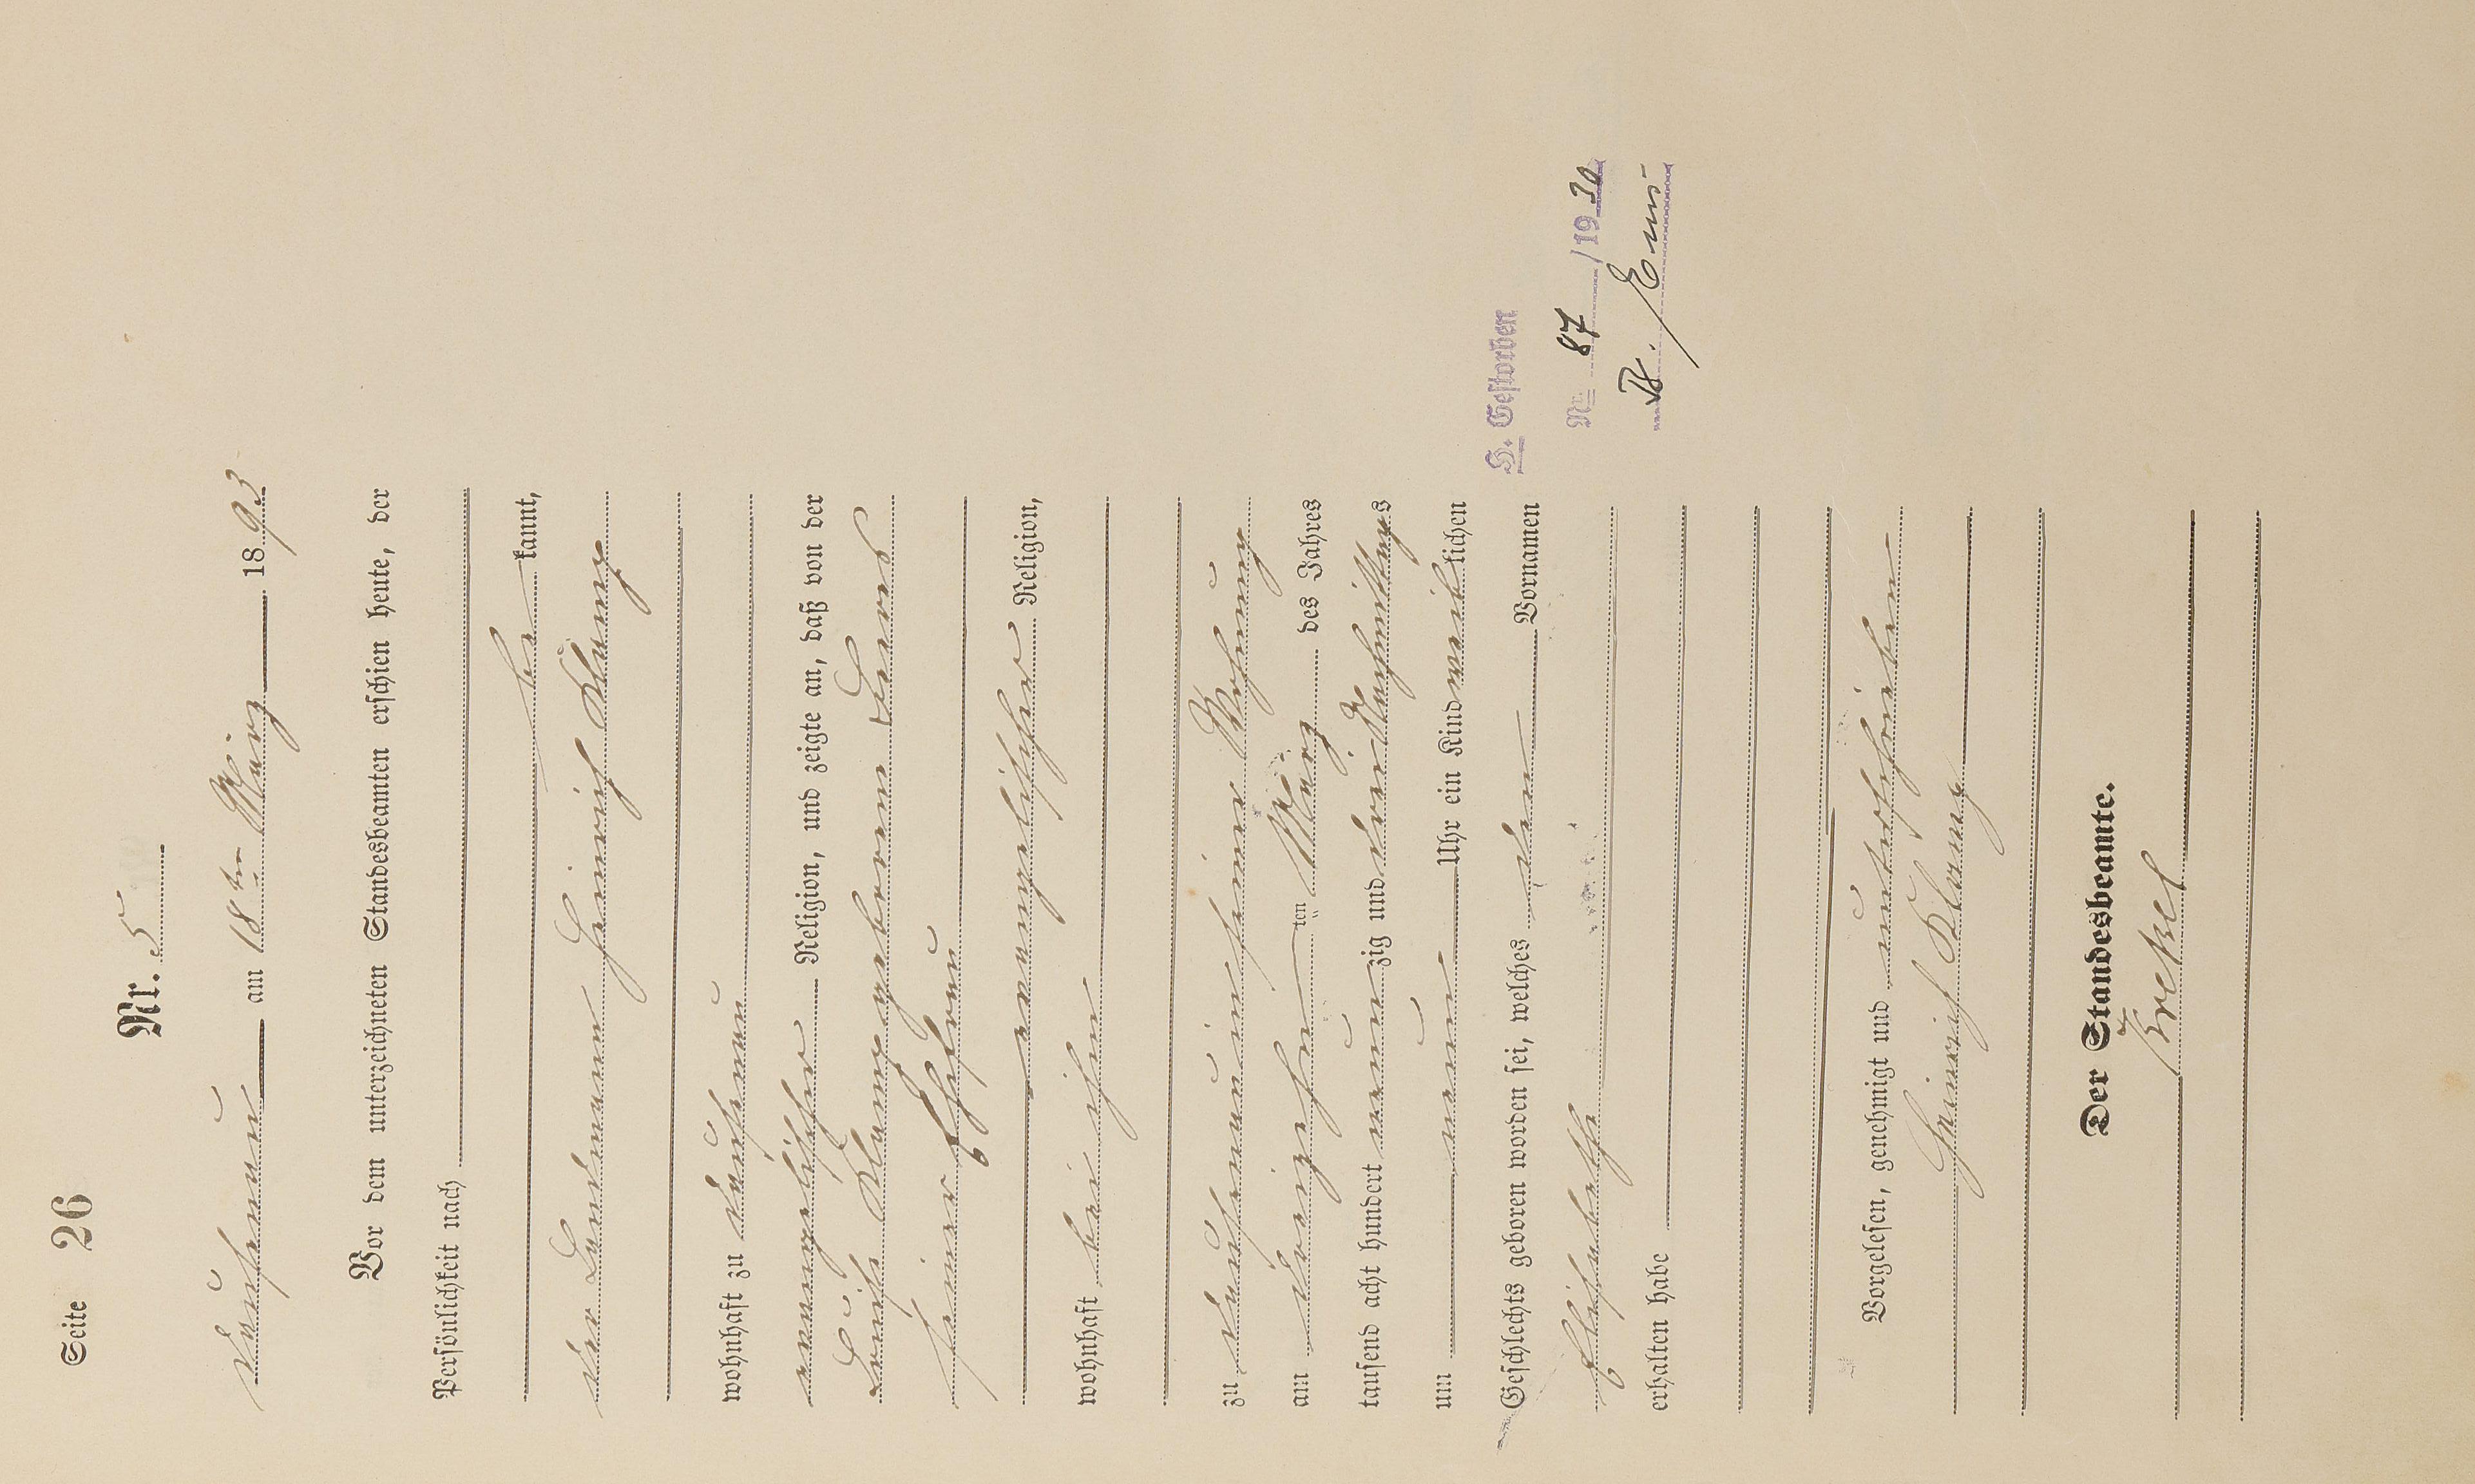 Seite 26
Nr. 5
Dausenau am 18ten März 1893
Vor dem unterzeichneten Standesbeamten erschien heute, der
Persönlichkeit nach
be kannt,
der Landmann Heinrich Klamp
wohnhaft zu Dausenau
evangelischer Religion, und zeigte an, daß von der
Louise Klamp geborenen
seiner Ehefrau
evangelischer Religion,
wohnhaft bei ihm
zu Dausenau in seiner Wohnung
am dreizehn ten März des Jahres
tausend acht hundert neun zig und drei Nachmittags
um neun Uhr ein Kind weiblichen
Geschlechts geboren worden sei, welches den Vornamen
Elisabethe
erhalten habe
Vorgelesen, genehmigt und unterschrieben
Heinrich Klamp
Der Standesbeamte.
H. Gestorben
Nr. 87 /1930
Ems